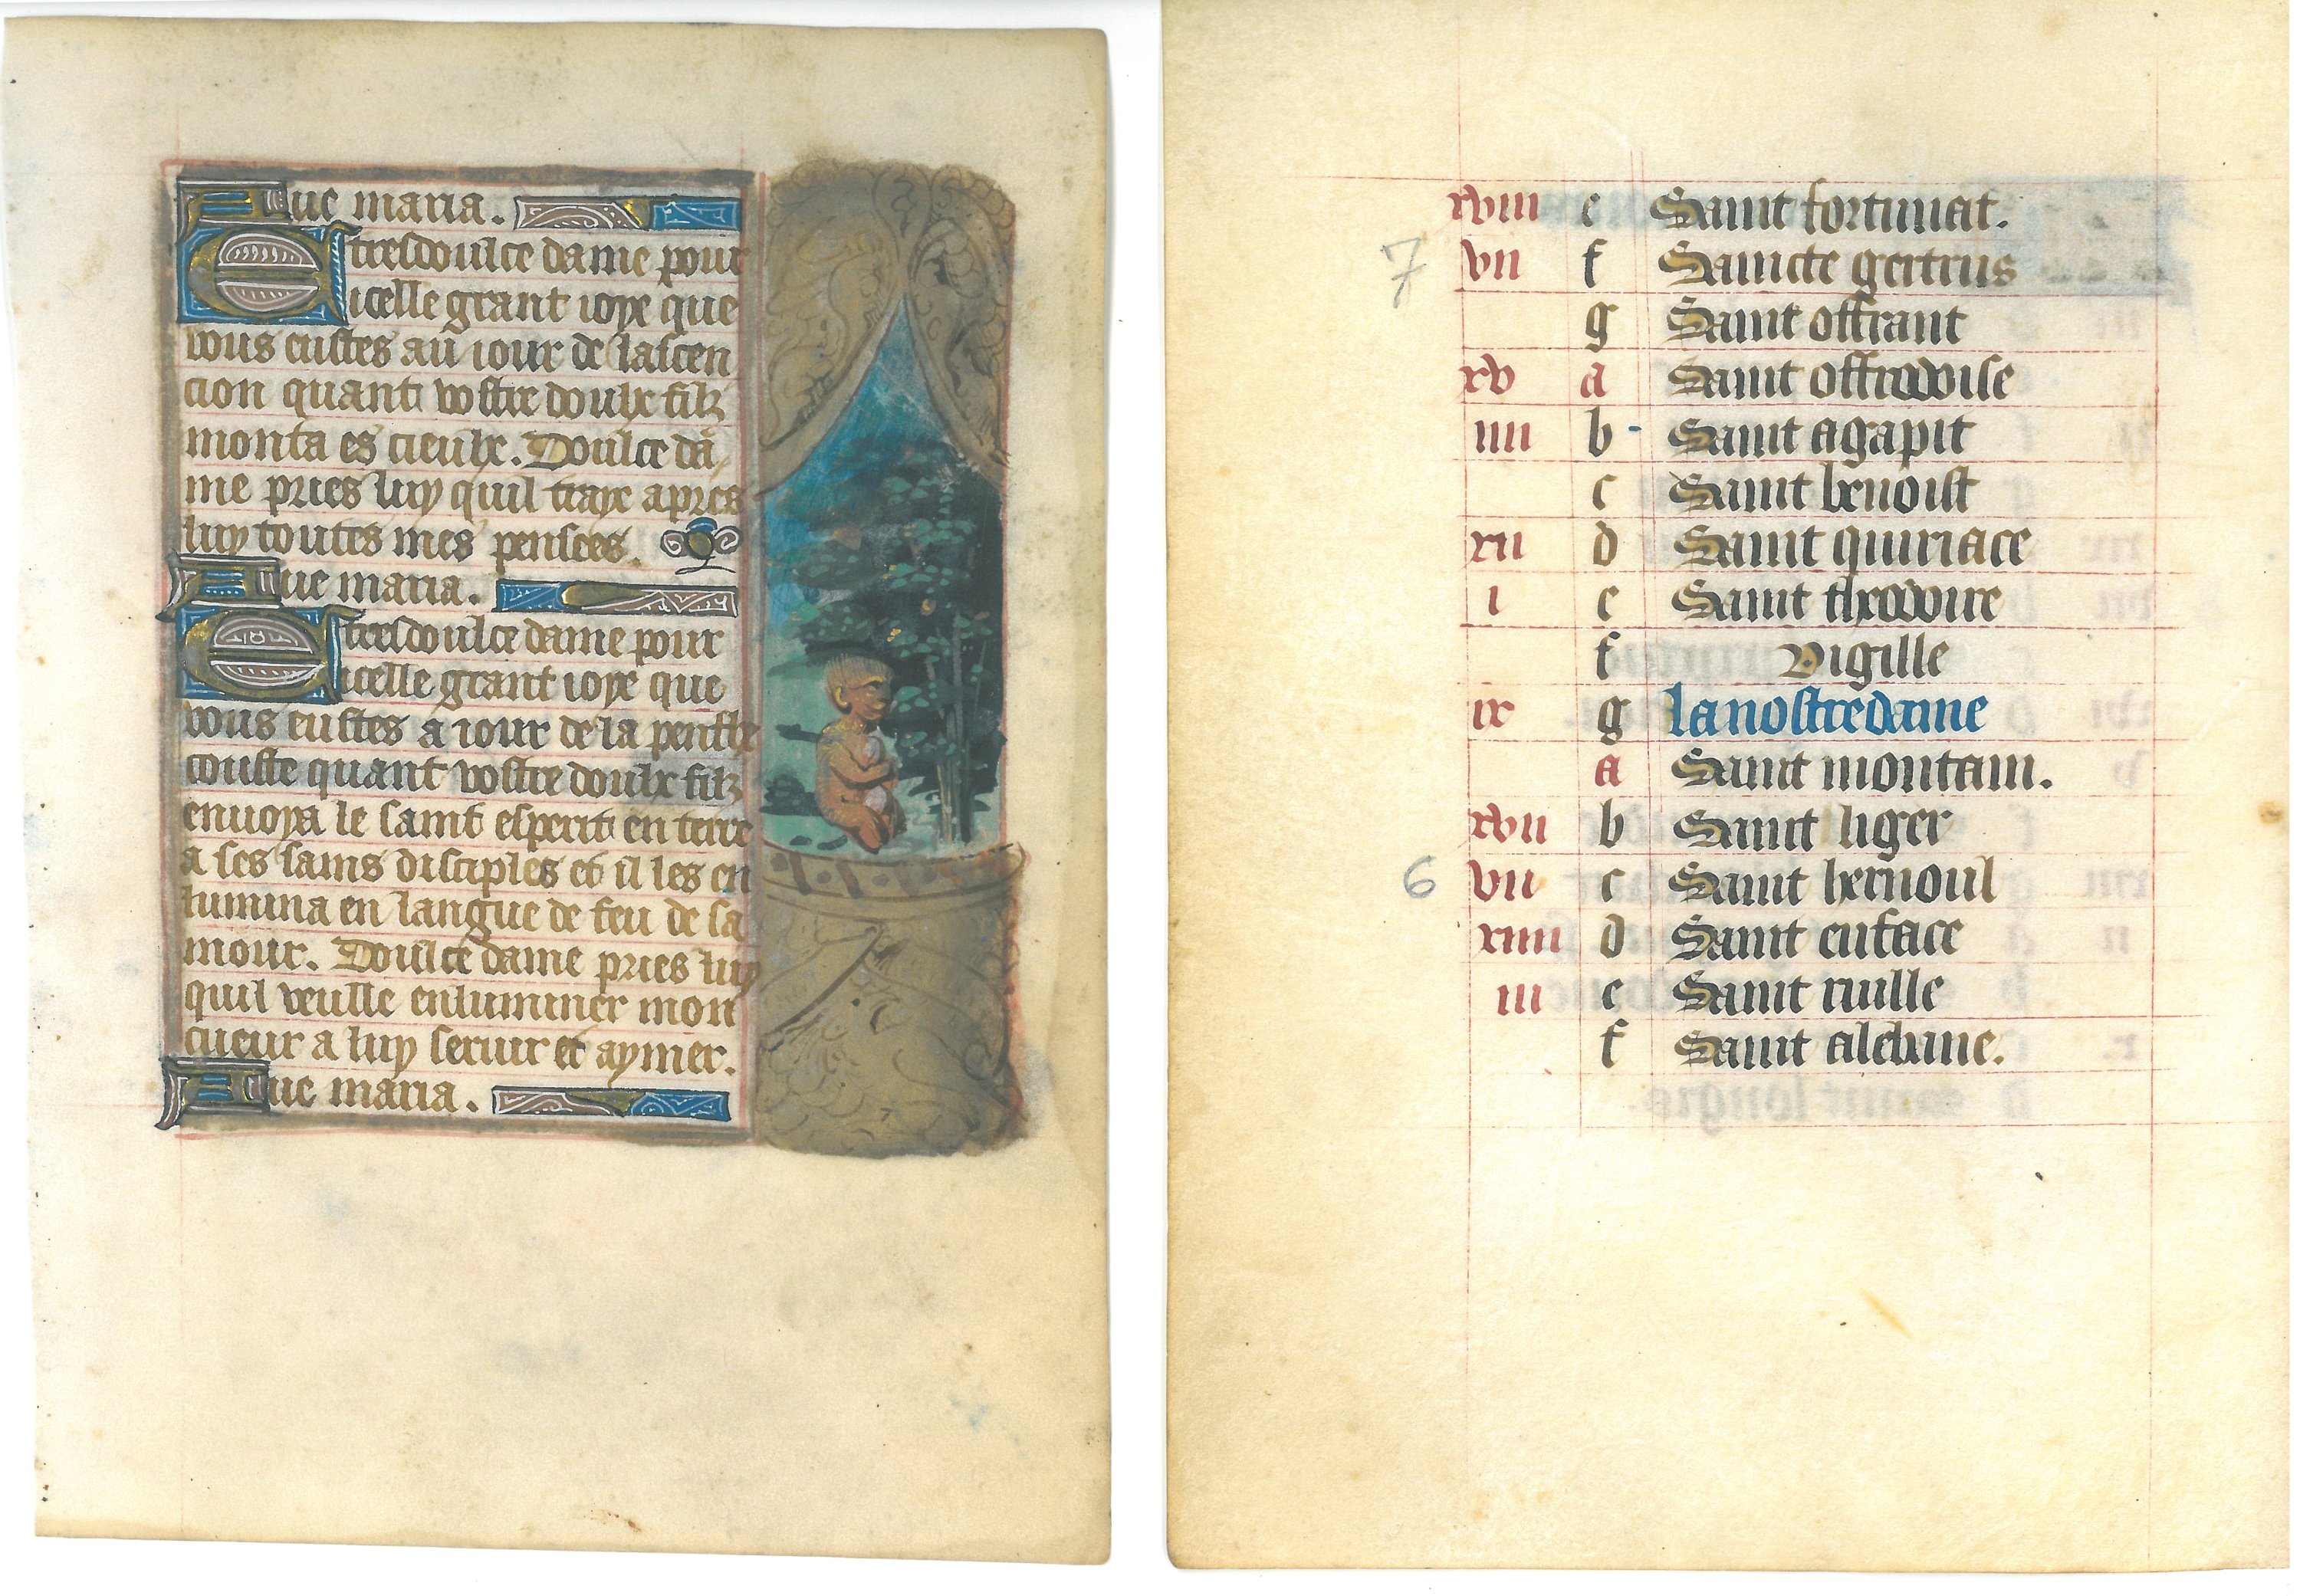 Aue maria.
O tresdoulce dame pour
icelle grant ioye que
vous eustes au iour de lascen
cion quant vostre doulx filz
monta es cieulx. Doulce da
me pries luy quil traye apres
luy toutes mes pensees.
Aue maria.
O tresdoulce dame pour
icelle grant ioye que
vous eustes a iour de la penthe
couste quant vostre doulx filz
enuoya le saint esperit en terre
a ses sains disciples et il les en
lumina en langue de feu de sa
mour. Doulce dame pries luy
quil veulle enluminer mon
cueur a luy seruir et aymer.
Aue maria.
xviii e Saint fortunat.
7 vii f Saincte gertrus
g Saint offrant
xv a Saint offrodoise
iiii b Saint agapit
c Saint benoist
xii d Saint quiriace
i e Saint theodoire
f vigille
ix g la nostre dame
a Saint montain.
xvii b Saint liger
6 vii c Saint hernoul
xiiii d Saint eustace
iii e Saint riulle
f Saint albine.